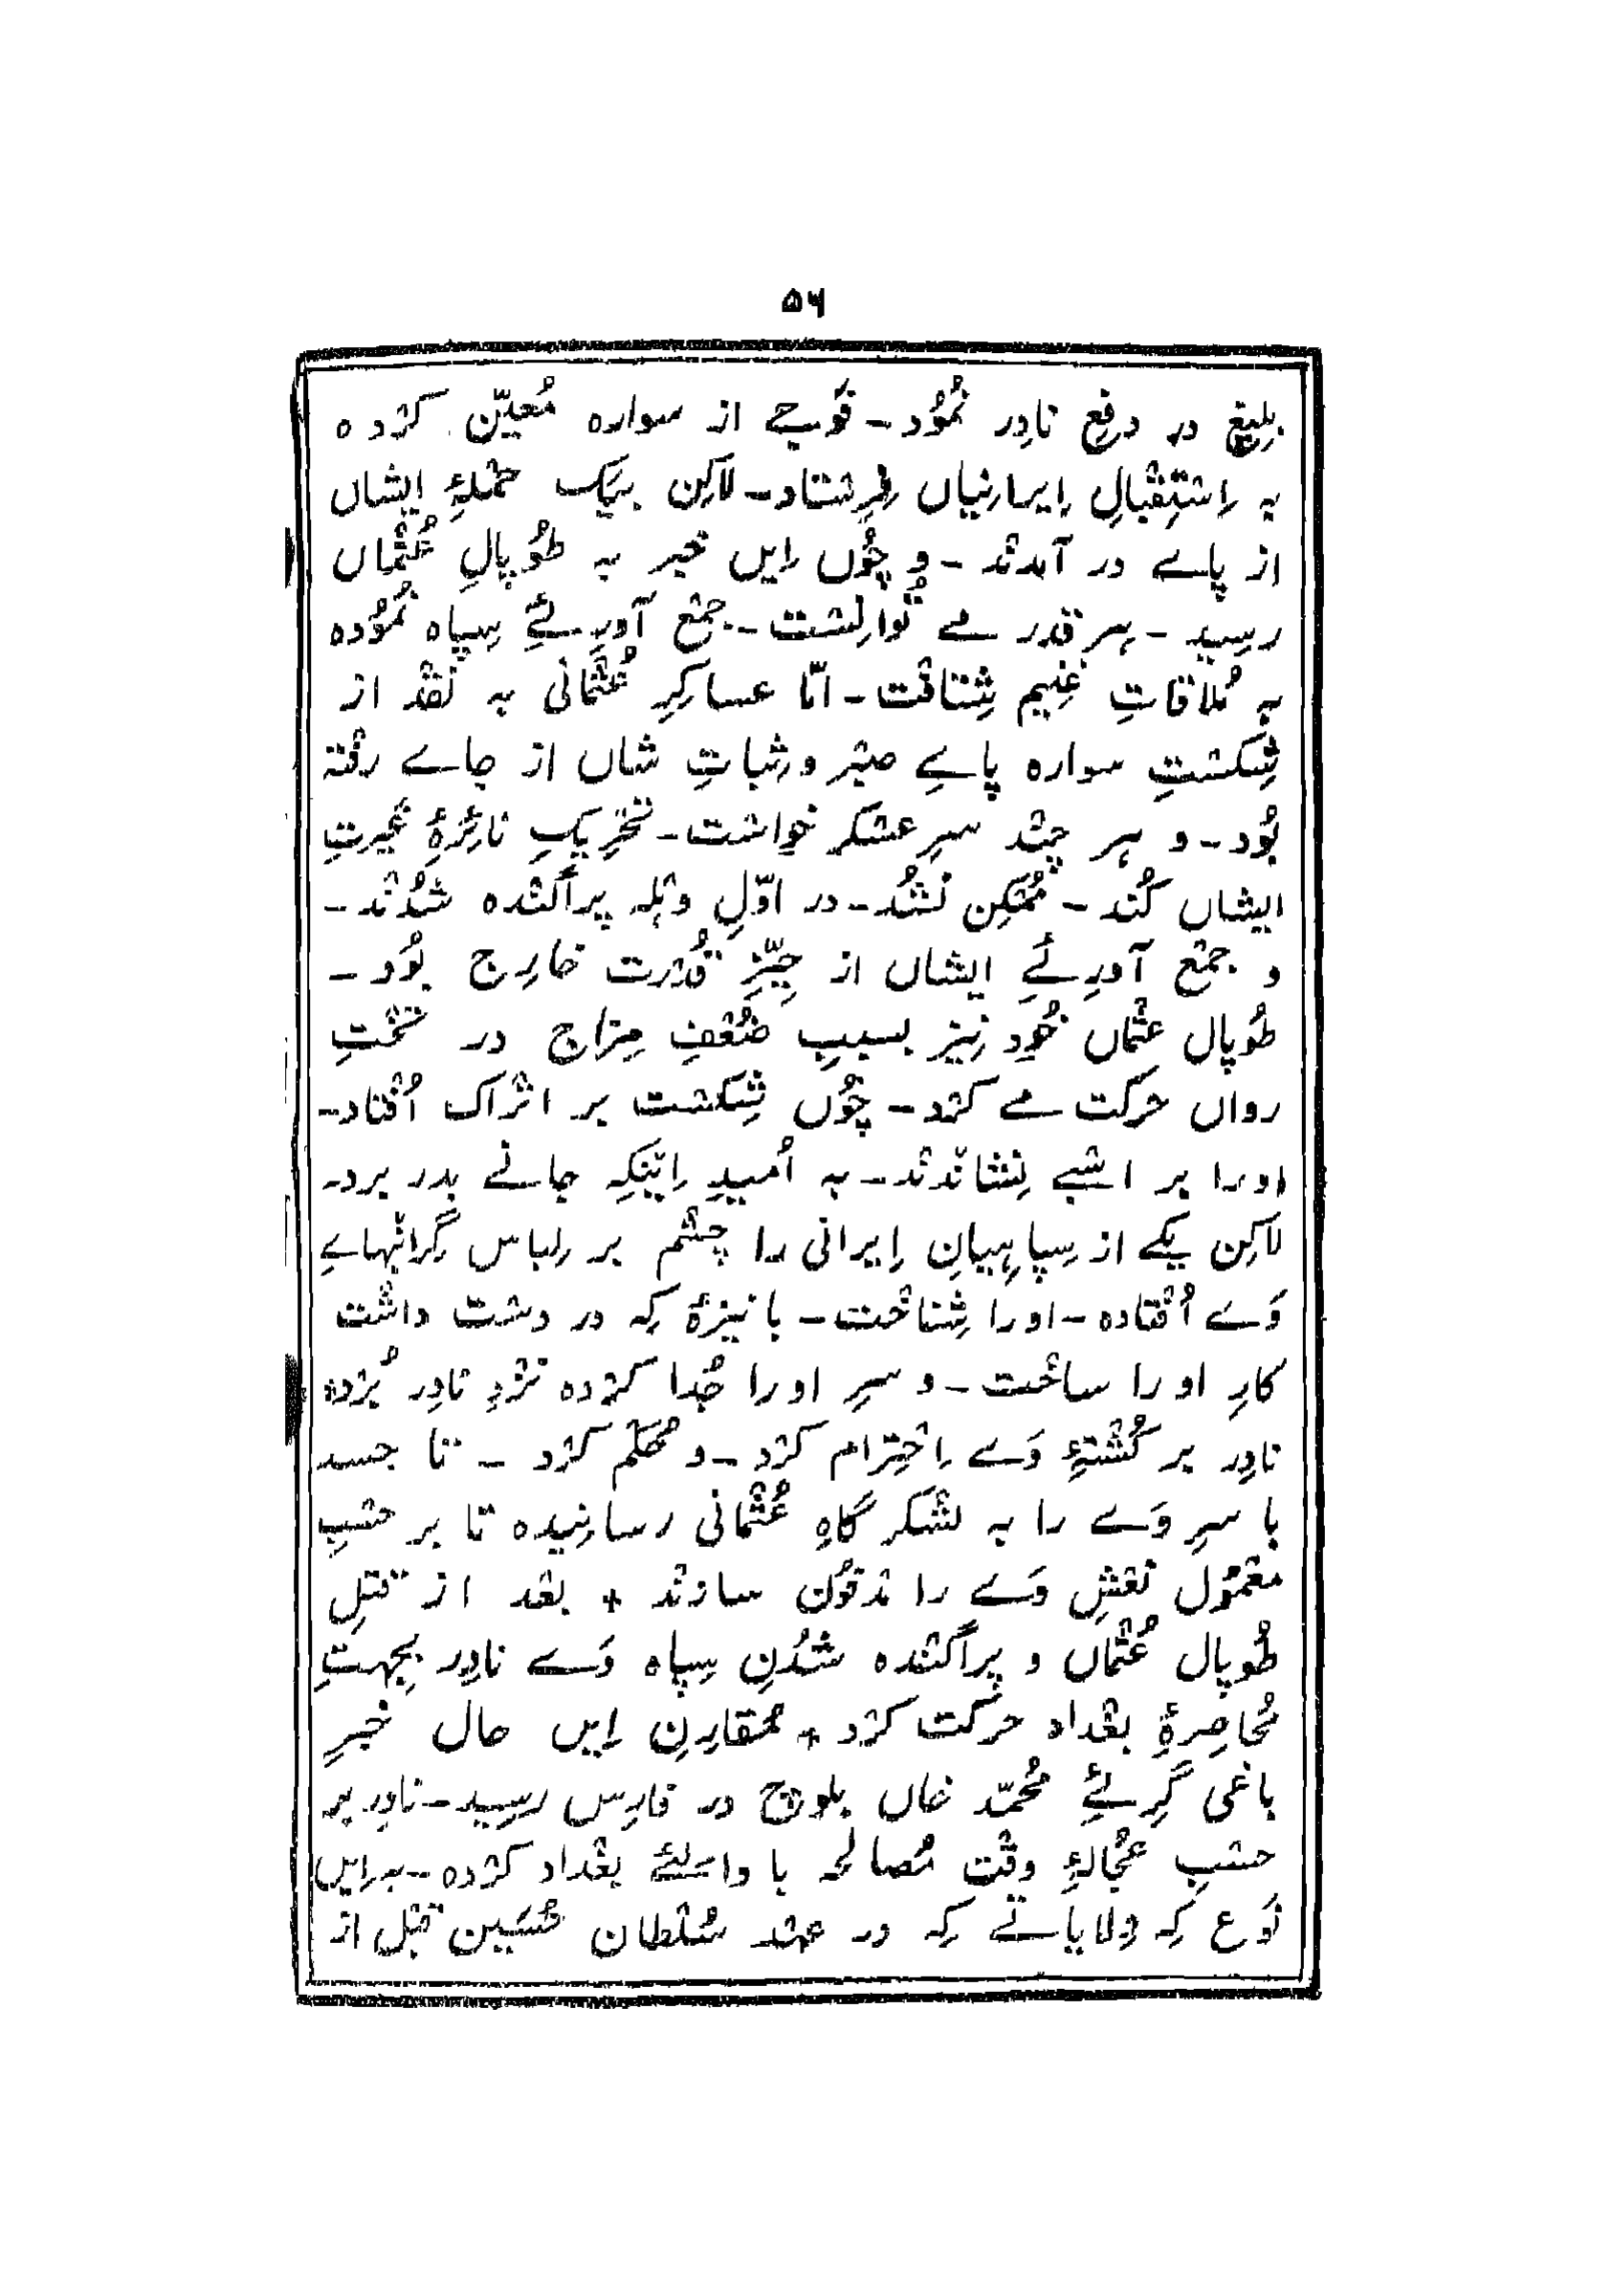 ۵۶
بلیغ در دفع نادر نمود - فوجے از سواره معیّن کرده
به استقبالِ ایرانیاں فرستاد - لاکن بیک حملۂ ایشاں
از پاے در آمدند - و چوں ایں خبر به طوپالِ عثماں
رسید - هر قدر مے توانست - جمع آوریٔے سپاه نموده
به ملاقاتِ غنیم شتافت - امّا عساکرِ عثمانی به نقد از
شکستِ سواره پاےِ صبر و ثباتِ شاں از جاے رفته
بود - و هر چند سرِ عسکر خواست - تحریکِ نائرۂ غیرتِ
ایشاں کند - ممکن نشد - در اوّلِ وہله پراگنده شدند -
و جمع آوریٔے ایشاں از حیّزِ قدرت خارج بود -
طوپال عثماں خود نیز بسببِ ضعفِ مزاج در تختِ
رواں حرکت مے کرد - چوں شکست بر اتراک افتاد -
او را بر اسپے نشاندند - به امیدِ اینکه جانے بدر برد -
لاکن یکے از سپاهیانِ ایرانی را چشم بر لباس گرانبہاےِ
وَے افتاده - او را شناخت - با نیزۂ که در دست داشت
کارِ او را ساخت - و سرِ او را جدا کرده نزدِ نادر برده
نادر بر کشتۂ وَے احترام کرد - و حکم کرد - تا جسد
با سرِ وَے را به لشکر گاهِ عثمانی رسانیده تا بر حسبِ
معمول نعشِ وَے را مدفون سازند + بعد از قتلِ
طوپال عثماں و پراگنده شدنِ سپاه وَے نادر بجهتِ
محاصرۂ بغداد حرکت کرد + مقارنِ ایں حال خبرِ
باغی گریٔے محمّد خاں بلوچ در فارس رسید - نادر بر
حسبِ عجالۂ وقت مصالحہ با والیٔے بغداد کرده - به ایں
نوع که ولایاتے که در عهد سلطان حسین قبل از